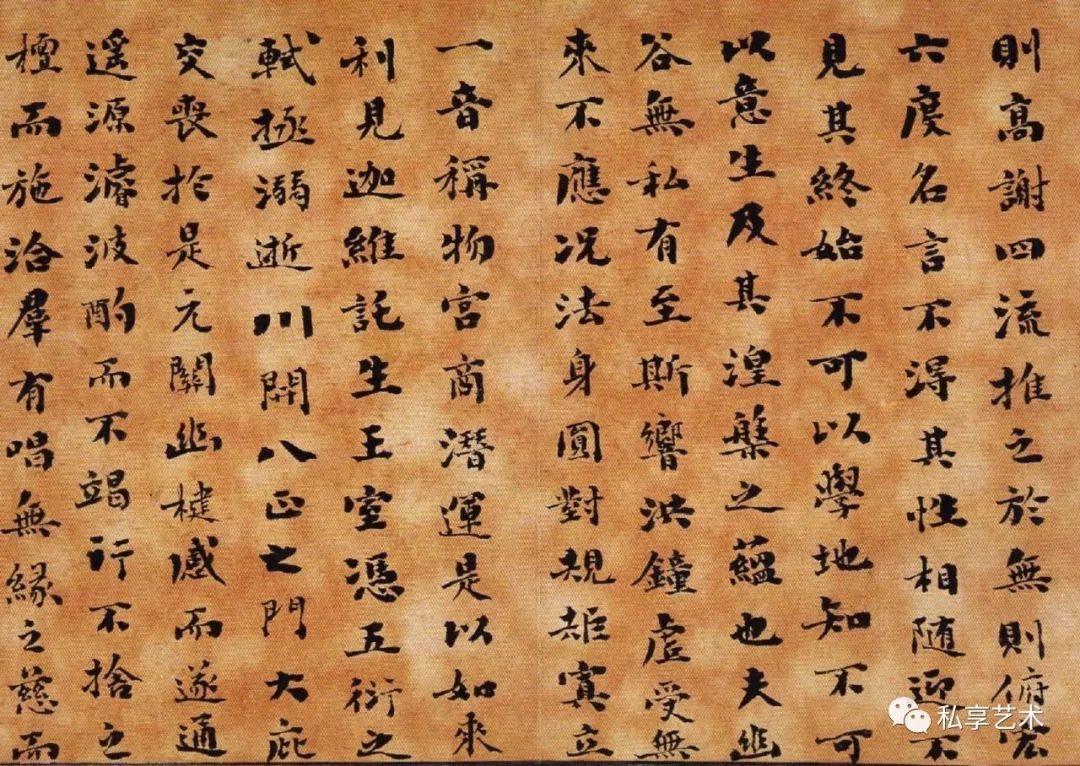 則高謝四流推之於無則俯宏
六度名言不得其性相随迎不
見其終始不可以學地知不可
以意生及其湼槃之蘊也夫幽
谷無私有至斯響洪鐘虛受無
來不應况法身圓對規矩冥立
一音稱物宮商潛運是以如來
利見迦維託生王室憑五衍之
軾拯溺逝川開八正之門大庇
交喪於是元關幽楗感而遂通
遥源濬波酌而不竭行不捨之
檀而施洽羣有唱無緣之慈而
私享艺术